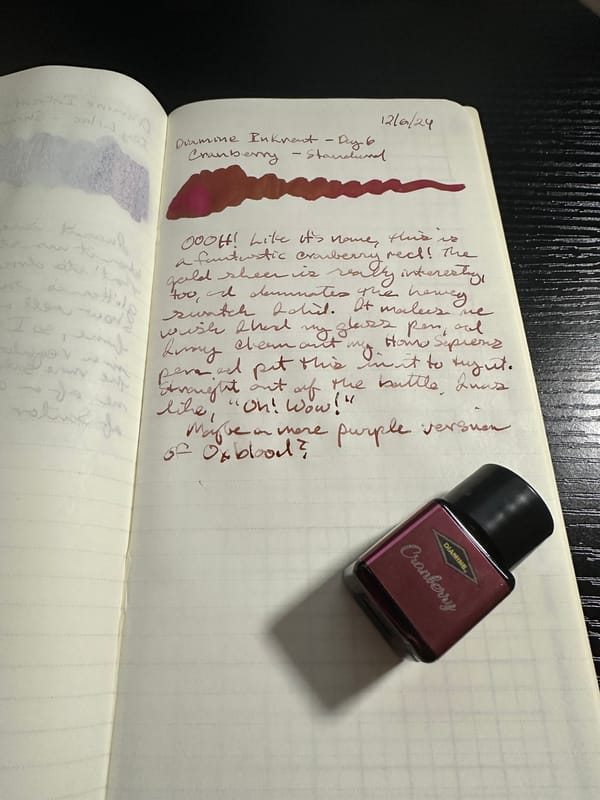 12/6/24
Diamine Inkvent - Day 6
Cranberry - Standard
OOOH! Like it's name, this is
a fantastic cranberry red! The
gold sheen is really interesting,
too, ad dominates the heavy
swatch I did. It makes me
wish I had my glass pen, ad
I may clean out my Homo Sapiens
pen ad put this in it to try it.
Straight out of the bottle, I was
like, "Oh! Wow!"
Maybe a more purple version
of Oxblood?
DIAMINE
Cranberry